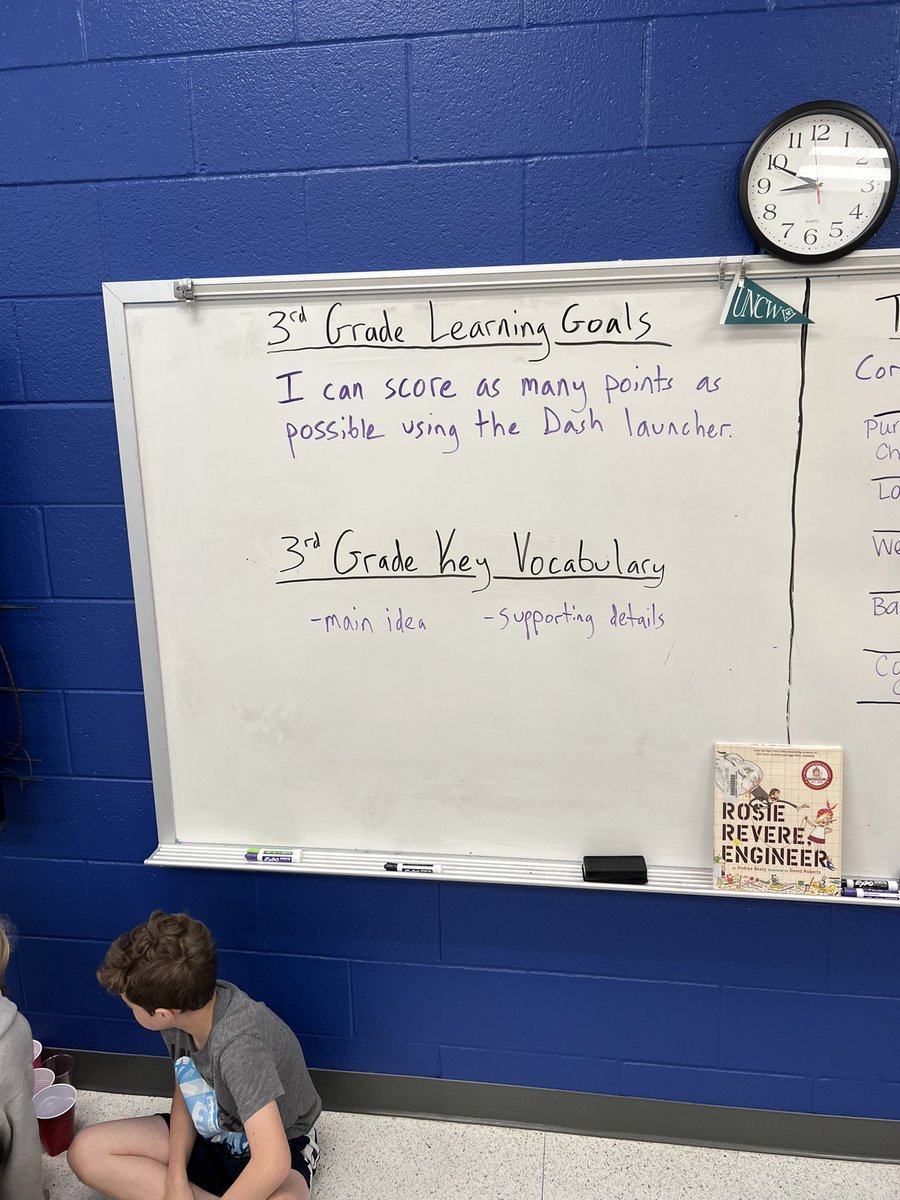 12
11 1
10
9 3
8 4
7 6 5
QUARTZ
3rd Grade Learning Goals
I can score as many points as
possible using the Dash launcher.
UNCW
3rd Grade Key Vocabulary
-main idea -supporting details
ROSIE
REVERE,
ENGINEER
by Andrea Beaty illustrated by David Roberts
EXPO